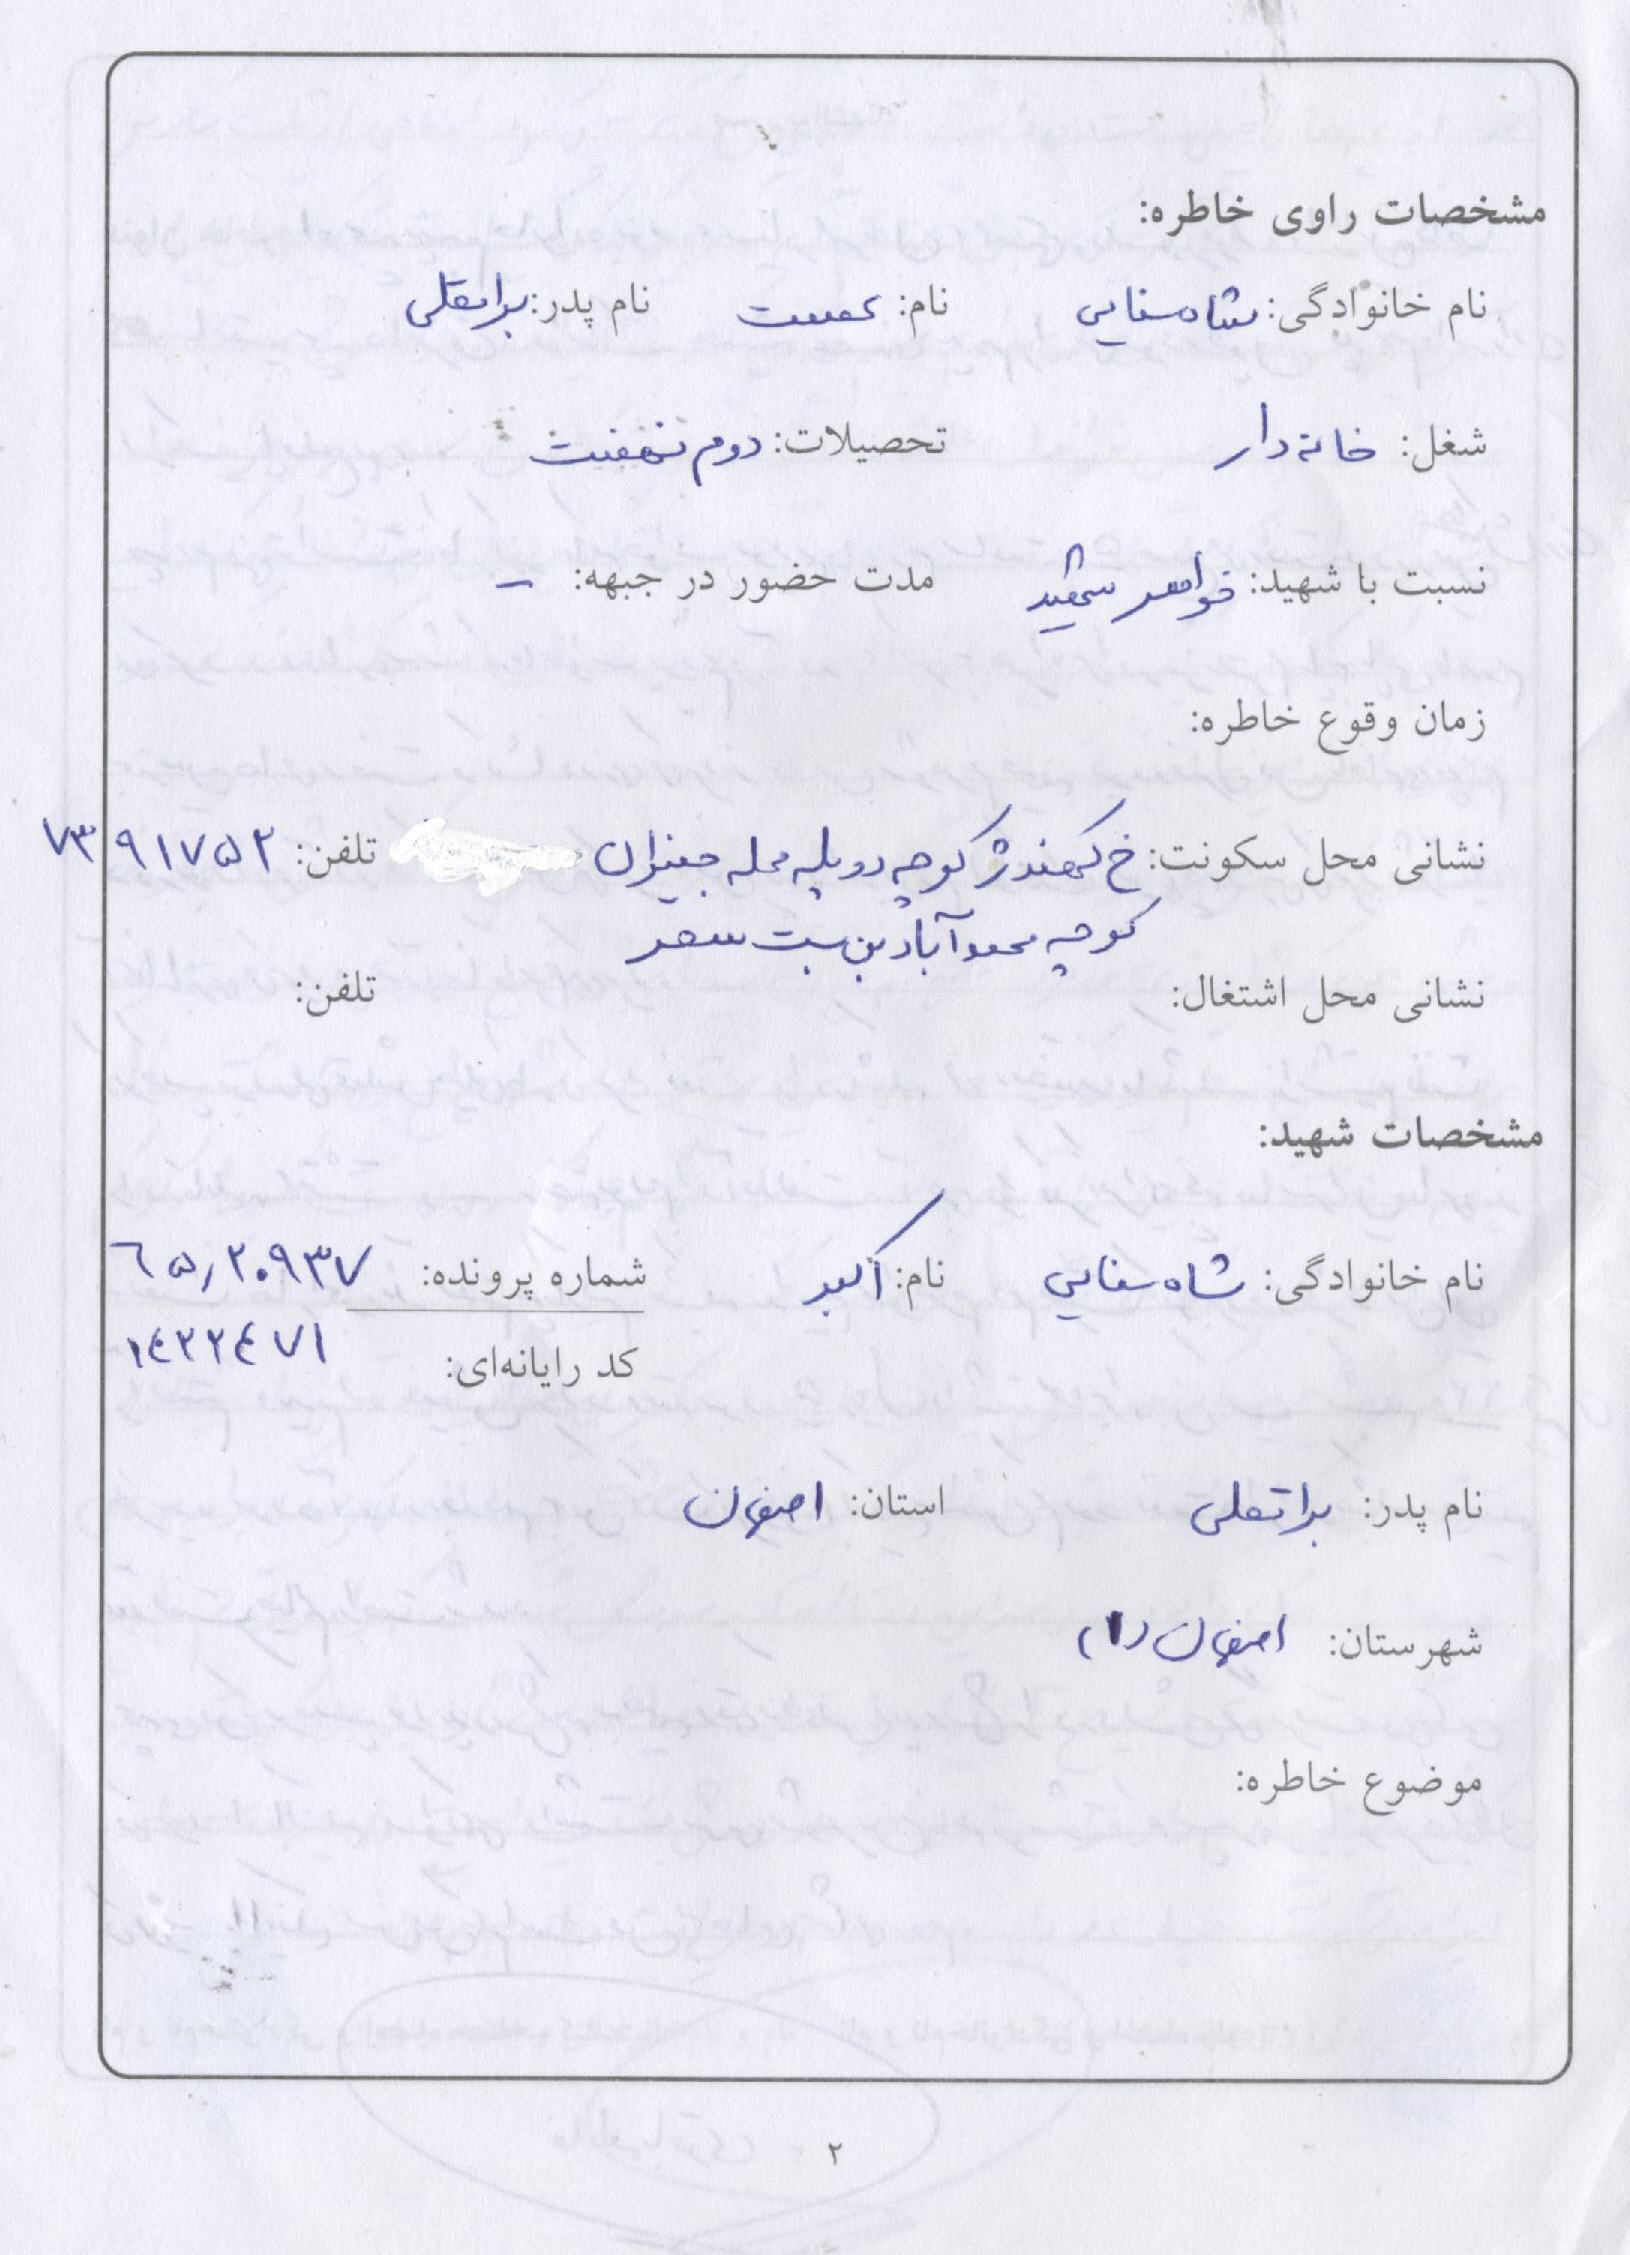 مشخصات راوی خاطره:
نام خانوادگی: شاه سنایی نام: عصمت نام پدر: براتعلی
شغل: خانه دار تحصیلات: دوم نهضت
نسبت با شهید: خواهر شهید مدت حضور در جبهه: –
زمان وقوع خاطره:
نشانی محل سکونت: خ کهندژ کوچه دوپله محله جیزان تلفن: ۷۳۹۱۷۵۲
کوچه محمودآباد بن بست سحر
نشانی محل اشتغال: تلفن:
مشخصات شهید:
نام خانوادگی: شاه سنایی نام: اکبر شماره پرونده: ۶۵٫۲۰۹۳۷
کد رایانه‌ای: ۱۴۲۲۴۷۱
نام پدر: براتعلی استان: اصفهان
شهرستان: اصفهان (۱)
موضوع خاطره:
۲